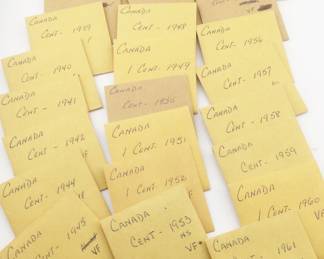 CANADA
CENT - 1939
CANADA
CENT - 1940
CANADA
CENT - 1941
CANADA
CENT - 1943
VF
CANADA
CENT - 1944
VF
CANADA
CENT - 1945
VF
CANADA
CENT - 1948
CANADA
1 CENT - 1949
CANADA
CENT - 1950
CANADA
1 CENT 1951
CANADA
1 CENT. 1952
VF
CANADA
CENT - 1953
NS
VF
CANADA
CENT - 1956
CANADA
CENT - 1957
CANADA
CENT - 1958
CANADA
CENT - 1959
CANADA
1 CENT 1960
VF
CANADA
CENT - 1961